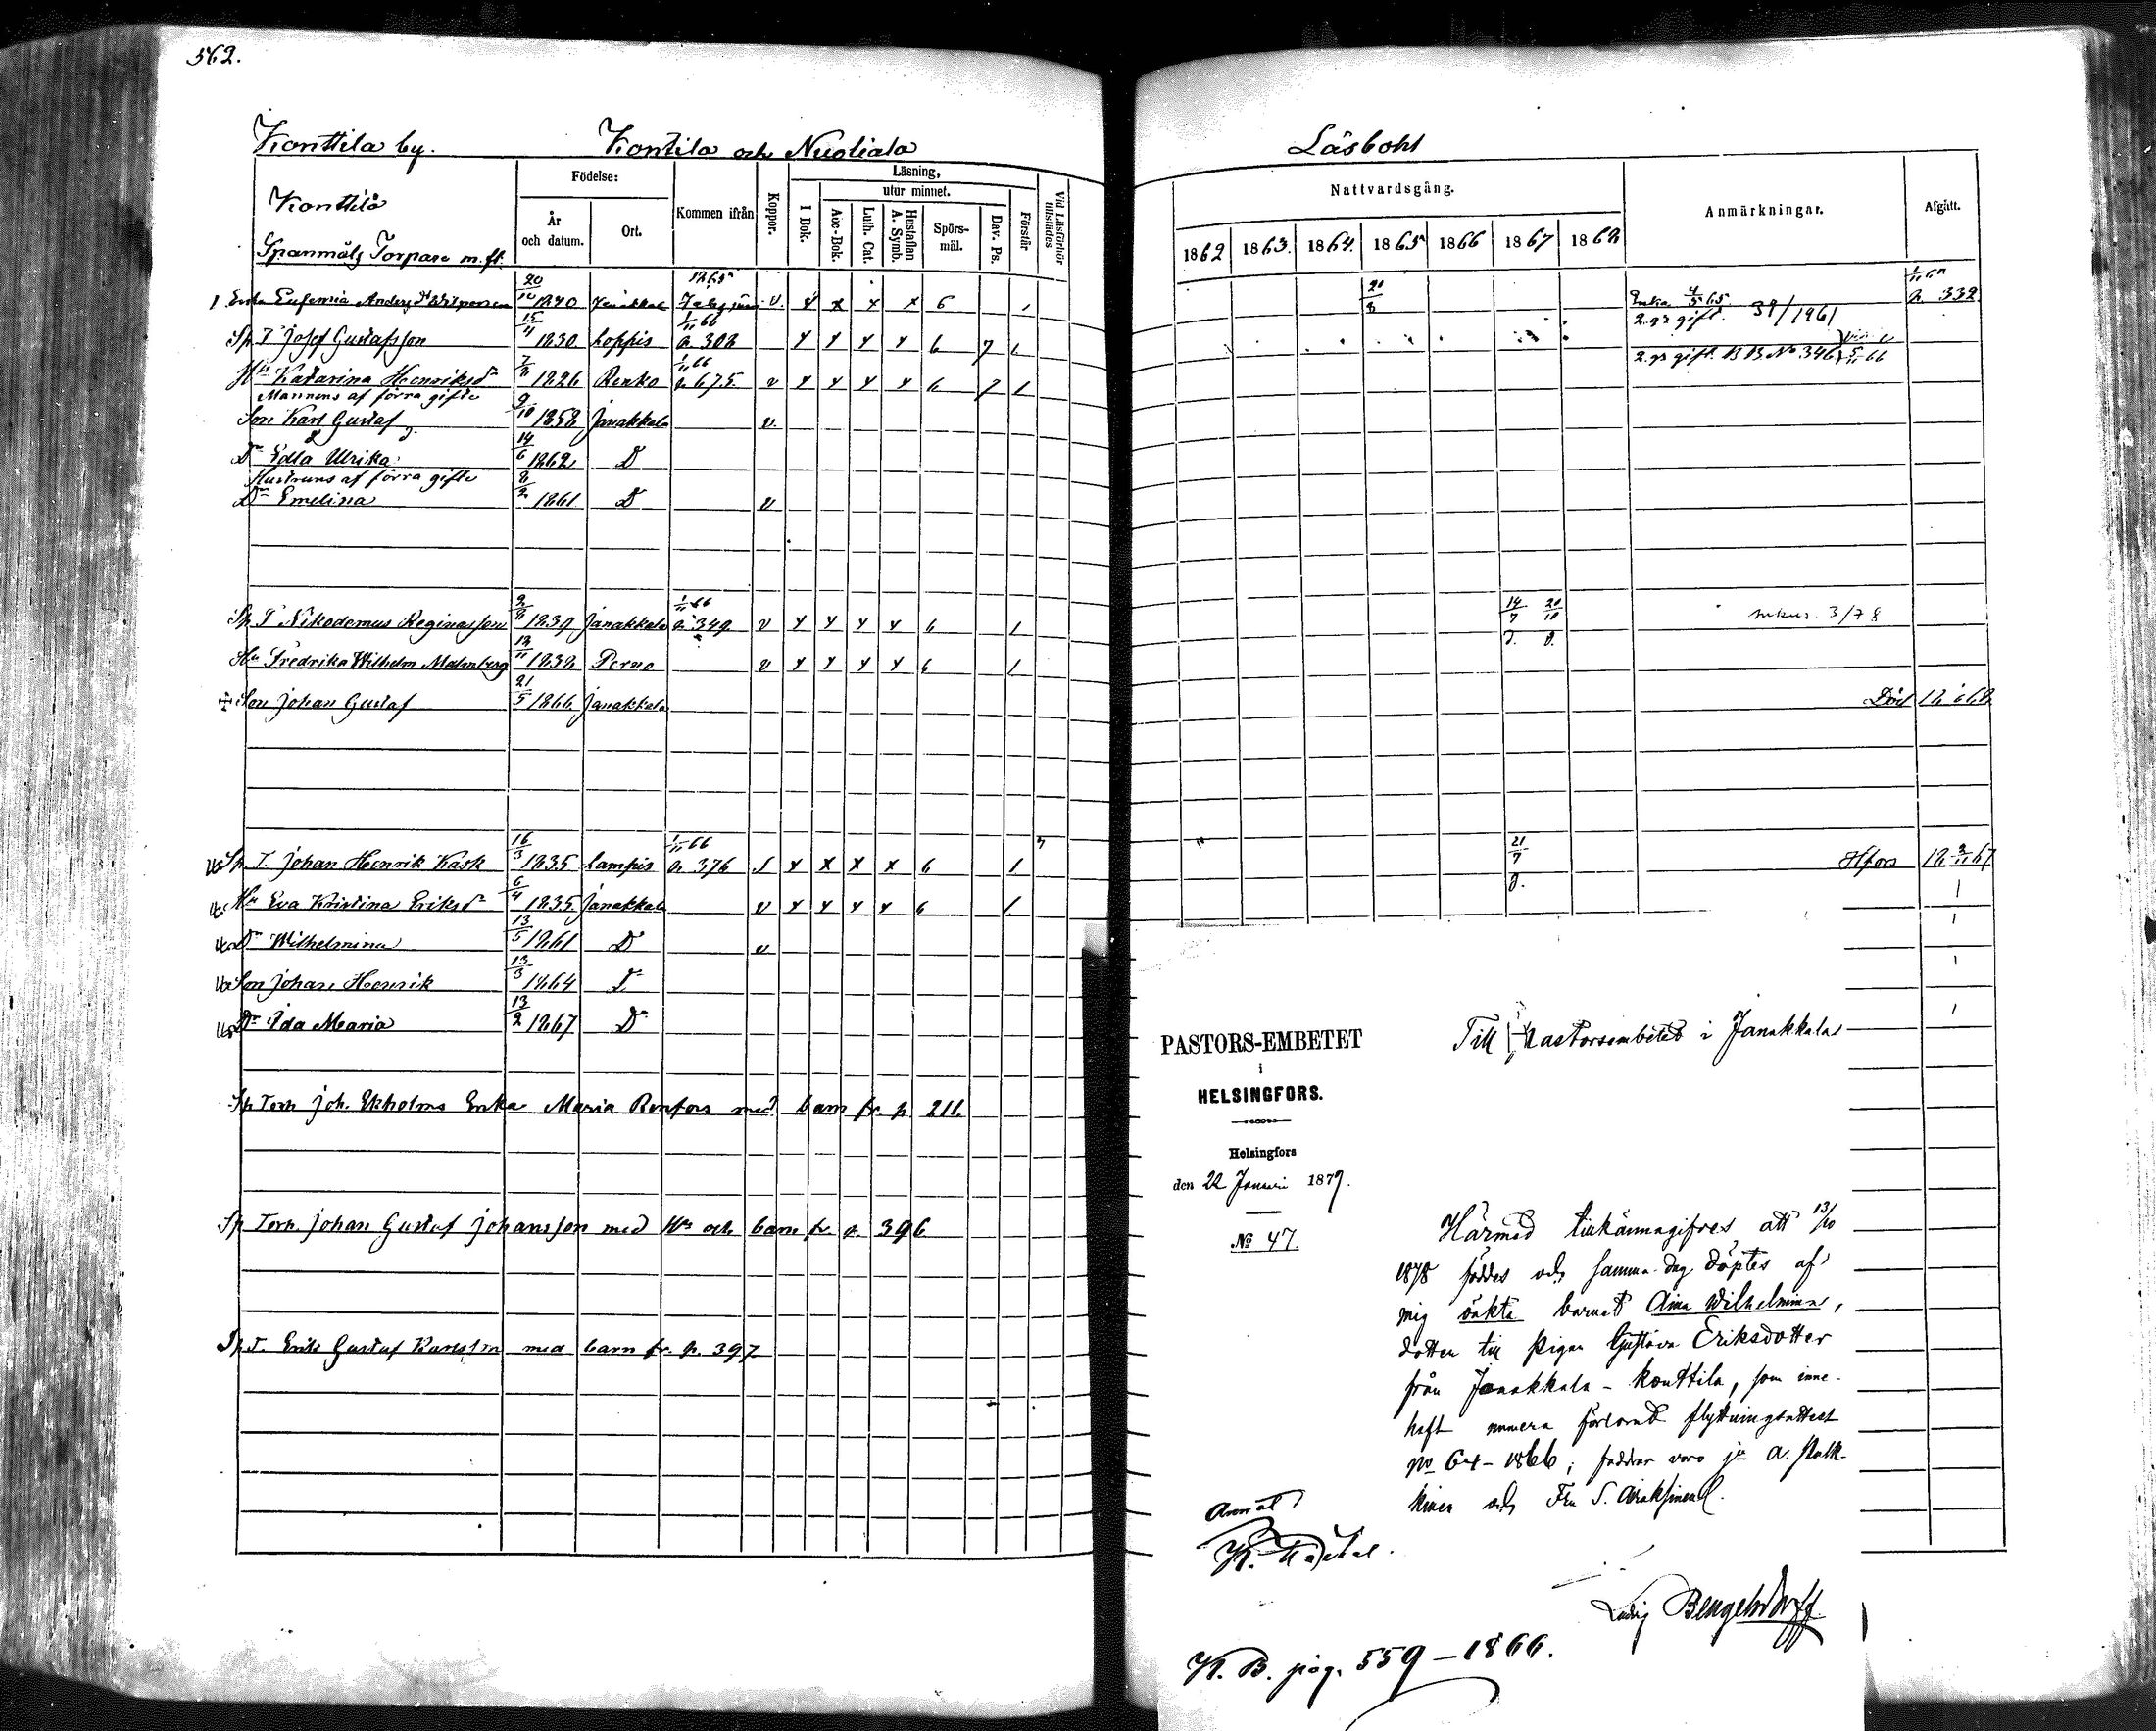 562.
Konttila by. Kontila och Nuoliala
Konttila
Spanmåls Torpare m.fl.
Födelse:
År och datum.
Ort.
Kommen ifrån
Koppor.
Läsning,
I Bok.
utur minnet.
Abc-Bok.
Luth. Cat.
Hustaflan A. Symb.
Spörsmål.
Dav. Ps.
Förstår
Vid Läsförhör tillstädes
1 Enka Eufemia Anders dr 20/12 1840 Janakkala 1865 v. x x x 6 1
Sp T Josef Gustafsson 15/4 1830 Loppis 1/11 66 p. 302 x x x x 6 7 1
Hu Katarina Henriksdr 7/11 1826 Renko 1/11 66 p. 675 v x x x x 6 7 1
Mannens af förra gifte
Son Karl Gustaf 9/10 1858 Janakkala v.
Dr Edla Ulrika 14/6 1862 D
Hustruns af förra gifte
Dr Emelina 8/2 1861 D v
Sp T Nikodemus Reginasson 9/11 1839 Janakkala 1/11 66 p. 349 v x x x x 6 1
Hu Fredrika Wilhelm Malmberg 12/11 1832 Perno v x x x x 6 1
Son Johan Gustaf 21/5 1866 Janakkala
Sp T. Johan Henrik Kask 16/3 1835 Lampis 1/11 66 p. 376 x x x x 6 1
Hu Eva Kristina Eriksdr 6/4 1835 Janakkala v x x x x 6 1
Dr Wilhelmina 13/5 1861 D v
Son Johan Henrik 13/3 1864 D
Dr Ida Maria 13/2 1867 D
Sp Torp Joh. Ekholms Enka Maria Renfors med barn fr. p 211
Sp Torp Johan Gustaf Johansson med Hu och barn fr. p. 396
Sp T. Erik Gustaf Karlsson med barn fr. p. 397
Läsboht
Nattvardsgång.
1862 1863. 1864. 1865 1866 1867 1868
Anmärkningar.
Afgått.
21/8 Enka 4/5 65 p. 332
2. gr gift. 39/1961
2. gr gift. B B No 346 5/11 66
14/7 20/10 3/78
Död 12 668
21/7 Hfors 12 3/11 67
PASTORS-EMBETET
i
HELSINGFORS.
Helsingfors
den 22 Januari 1879.
No 47.
Till Pastorsembetet i Janakkala
Härmed tillkännagifves att 13/10
1878 föddes och samma dag döptes af
mig oäkta barnet Aina Wilhelmina,
dotter till pigan Gustava Eriksdotter
från Janakkala - Konttila, som inne-
haft numera förlorad flyttningsattest
No 64-1866; faddrar voro jn A.
och Fru S.
Ludvig Bengelsdorff
K. B. pag. 559-1866.